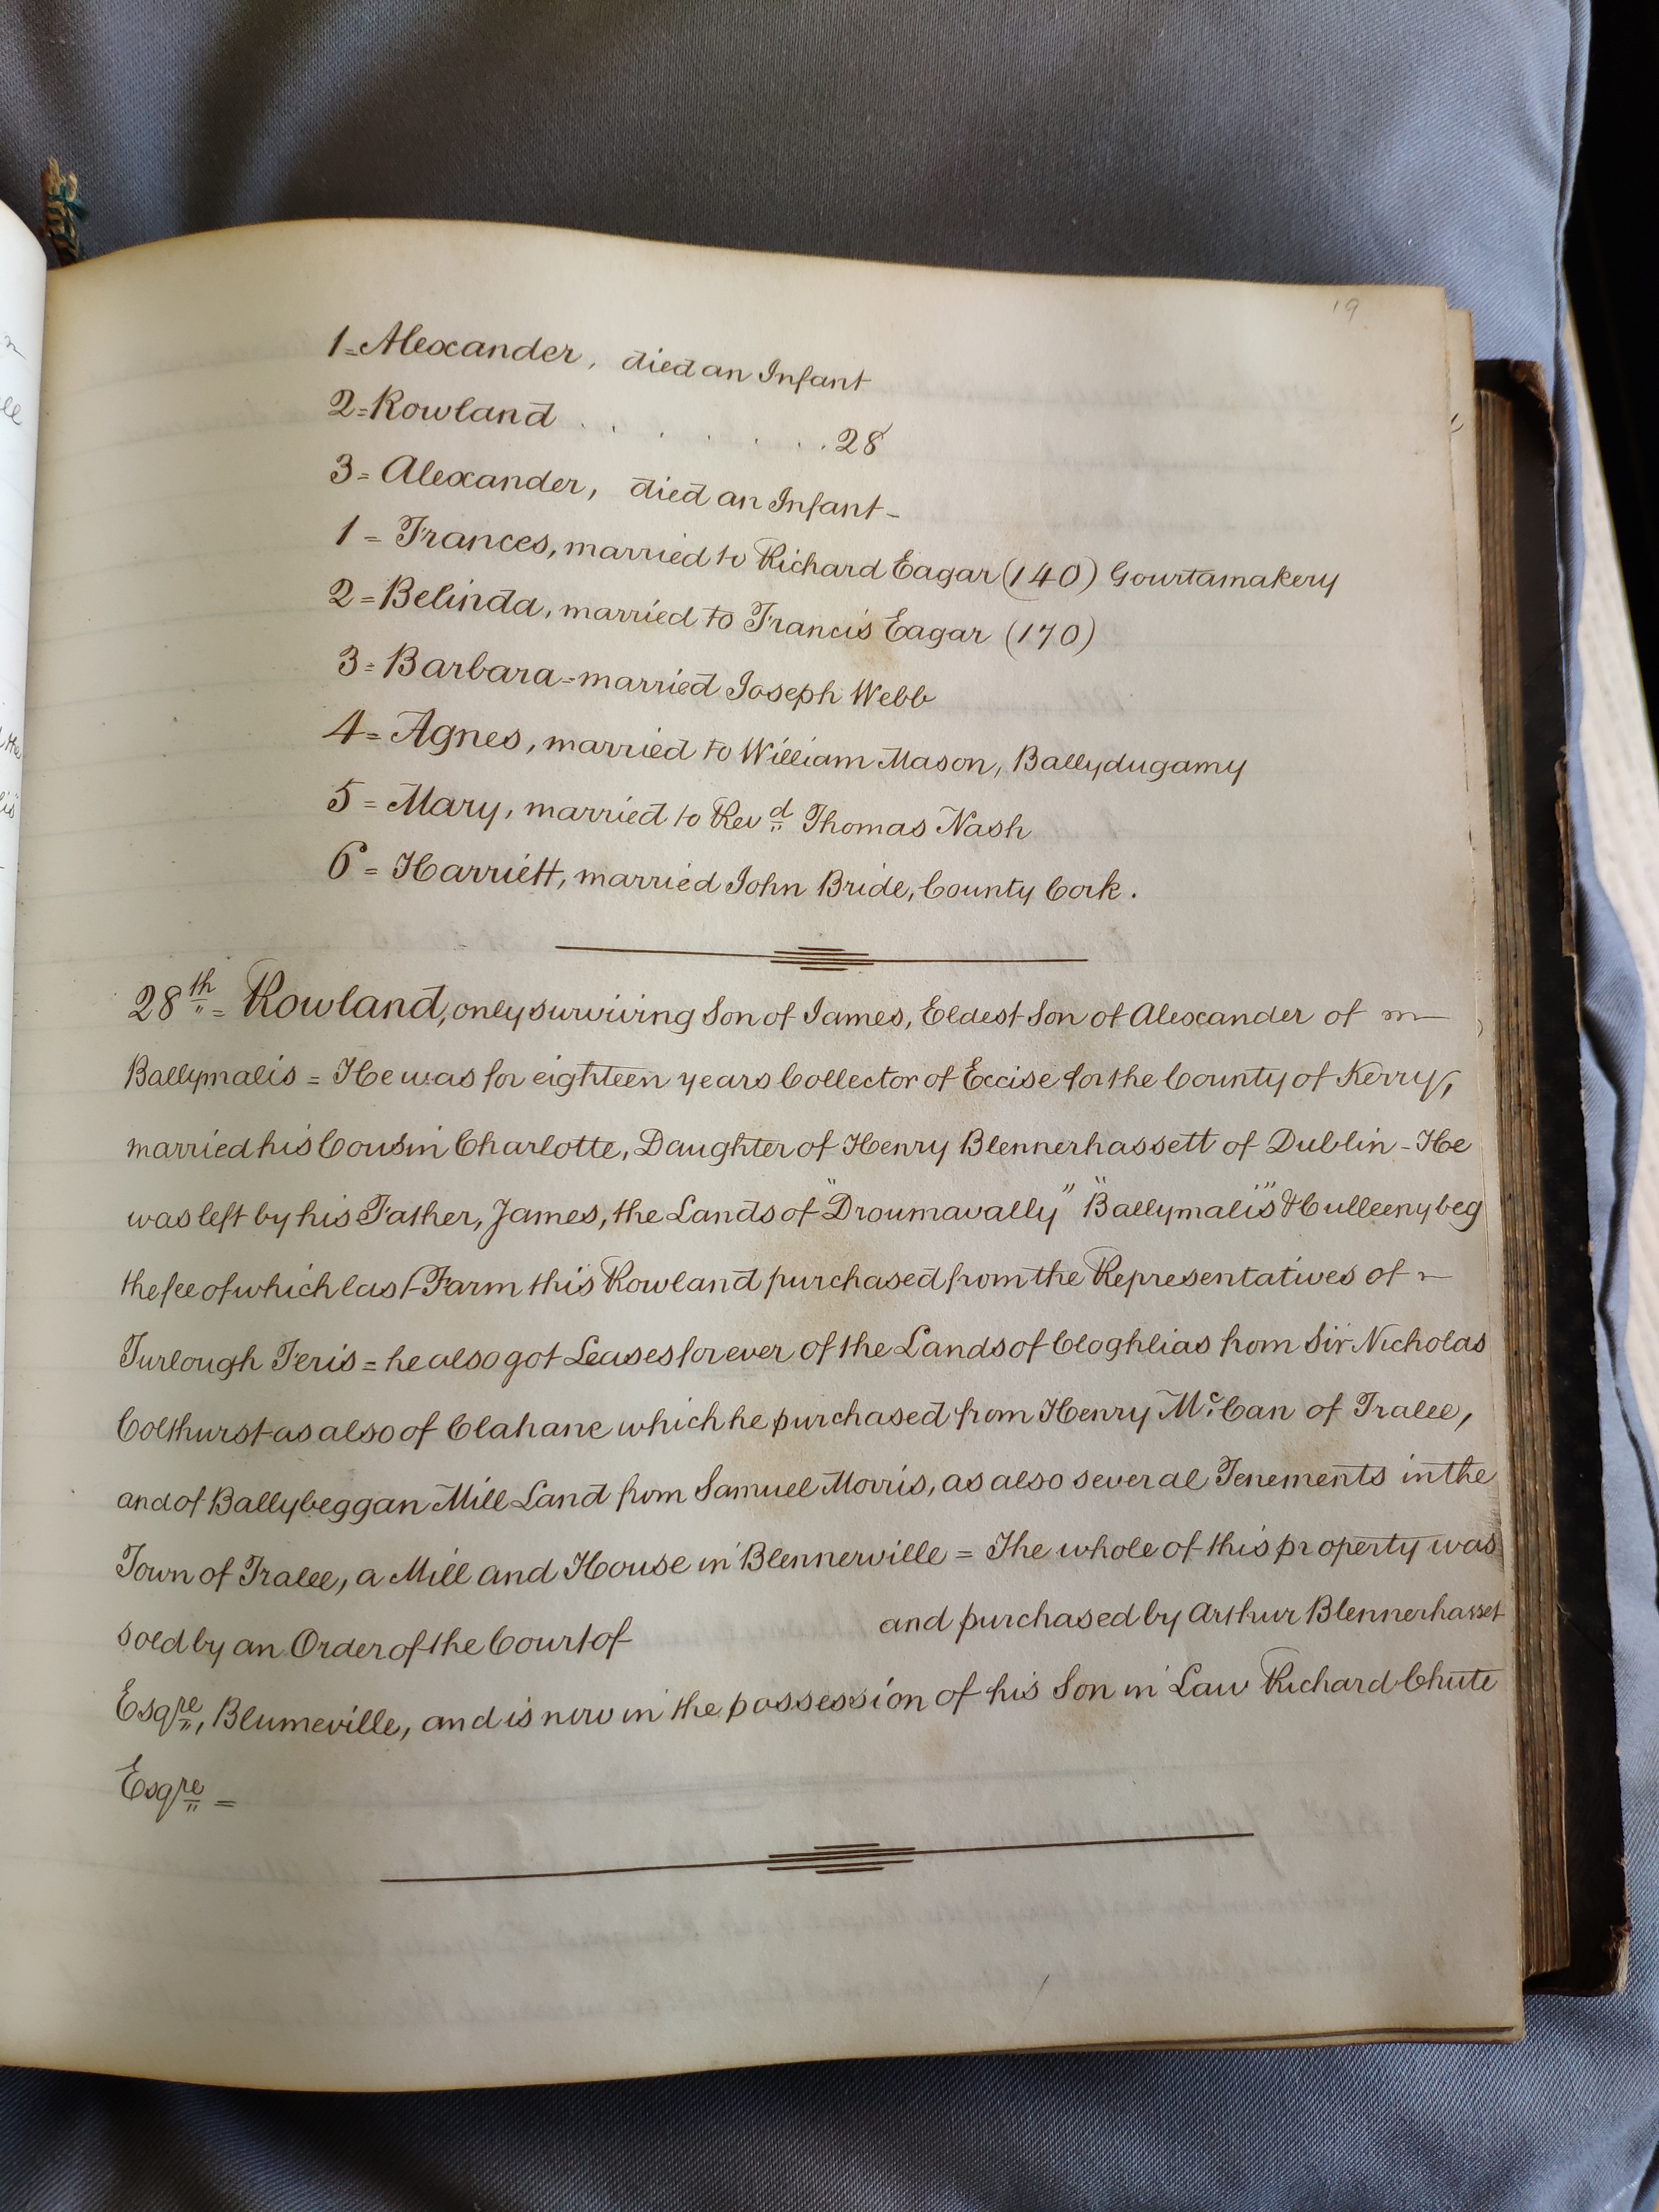 19
1=Alexander, died an Infant
2=Rowland . . . . . . . 28
3= Alexander, died an Infant-
1 = Frances, married to Richard Eagar (140) Gourtamakery
2=Belinda, married to Francis Eagar (170)
3=Barbara=married Joseph Webb
4= Agnes, married to William Mason, Ballydugamy
5 = Mary, married to Revd Thomas Nash
6 = Harriett, married John Bride, County Cork.
28th = Rowland, only surviving Son of James, Eldest Son of Alexander of
Ballymalis = He was for eighteen years Collector of Excise for the County of Kerry,
married his Cousin Charlotte, Daughter of Henry Blennerhassett of Dublin - He
was left by his Father, James, the Lands of "Droumavally" "Ballymalis" & Culleenybeg
the fee of which last Farm this Rowland purchased from the Representatives of
Turlough Feris = he also got Leases forever of the Lands of Cloghlias from Sir Nicholas
Colthurst-as also of Clahane which he purchased from Henry McCan of Tralee,
and of Ballybeggan Mill Land from Samuel Morris, as also several Tenements in the
Town of Tralee, a Mill and House in Blennerville = The whole of this property was
sold by an Order of the Court of and purchased by Arthur Blennerhasset
Esqre, Blumeville, and is now in the possession of his Son in Law Richard Chute
Esqre =